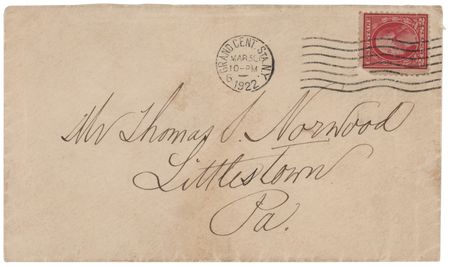 GRAND CENT. STA. N.Y.
MAR
10-PM
1922
Mr Thomas S. Norwood
Littlestown
Pa.